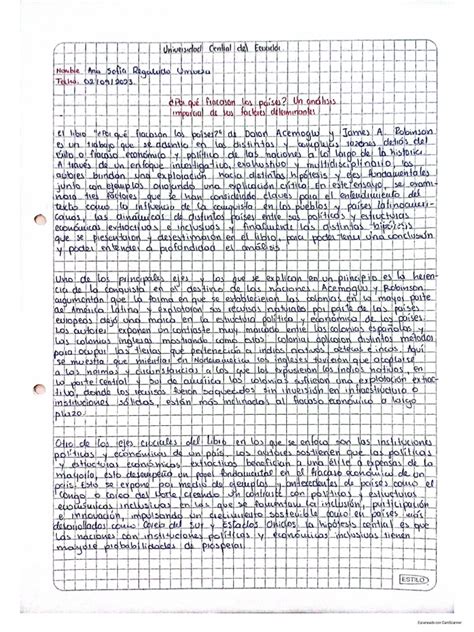 Universidad Central del Ecuador
Nombre: Ana Sofía Regalado
Fecha: 02/09/2023
¿Por qué fracasan los países? Un análisis
imparcial de sus factores determinantes
El libro "¿Por qué fracasan los países?" de Daron Acemoglu y James A. Robinson
es un trabajo que se adentra en las distintas y complejas razones detrás del
éxito o fracaso económico y político de las naciones a lo largo de la historia.
A través de un enfoque investigativo, exhaustivo y multidisciplinario, los
autores brindan una exploración hacia distintas hipótesis y ejes fundamentales
junto con ejemplos otorgando una explicación crítica. En este ensayo, se exami-
nara tres factores que se han considerado claves para el entendimiento del
texto como la influencia de la conquista en los pueblos y países latinoameri-
canos, las dinámicas de distintos países entre sus políticas y estructuras
económicas extractivas e inclusivas y finalmente las distintas hipótesis
que se presentaron y desestimaron en el libro, para poder tener una conclusión
y poder entender a profundidad el análisis
Uno de los principales ejes y los que se explican en un principio es la heren-
cia de la conquista en el destino de las naciones. Acemoglu y Robinson,
argumentan que la forma en que se establecieron las colonias en la mayor parte
de América latina y explotaron sus recursos naturales por parte de los países
europeos dejó una marca en la estructura política y económica de los países.
Los autores exponen un contraste muy marcado entre las colonias españolas y
las colonias inglesas mostrando como estas colonias aplican distintos métodos
para ocupar las tierras que pertenencían a indios nativos, aztecas e incas. Aquí
se muestra que mientras en Norteamérica los ingleses tuvieron que acoplarse
a las normas y circunstancias a las que los expusieron los indios nativos, en
la parte central y sur de america las colonias sufrieron una explotación extrac-
tiva, donde los recursos fueron saqueados sin inversión en infraestructura e
instituciones sólidas, están más inclinados al fracaso económico a largo
plazo.
Otro de los ejes cruciales del libro en los que se enfoca son las instituciones
políticas y económicas de un país, los autores sostienen que las políticas
y estructuras económicas extractivas benefician a una élite a expensas de la
mayoría, esto desempeña un papel fundamental en el fracaso económico de un
país. Esto se expone por medio de ejemplos y antecedentes de países como el
Congo o Corea del Norte, creando un contraste con políticas y estructuras
económicas inclusivas en las que se fomentan la inclusión, participación
e innovación, impulsando un crecimiento sostenible como en países más
desarrollados como Corea del Sur y Estados Unidos. la hipótesis central es que
las naciones con instituciones políticas y económicas inclusivas tienen
mayores probabilidades de prosperar.
ESTILO
Escaneado con CamScanner